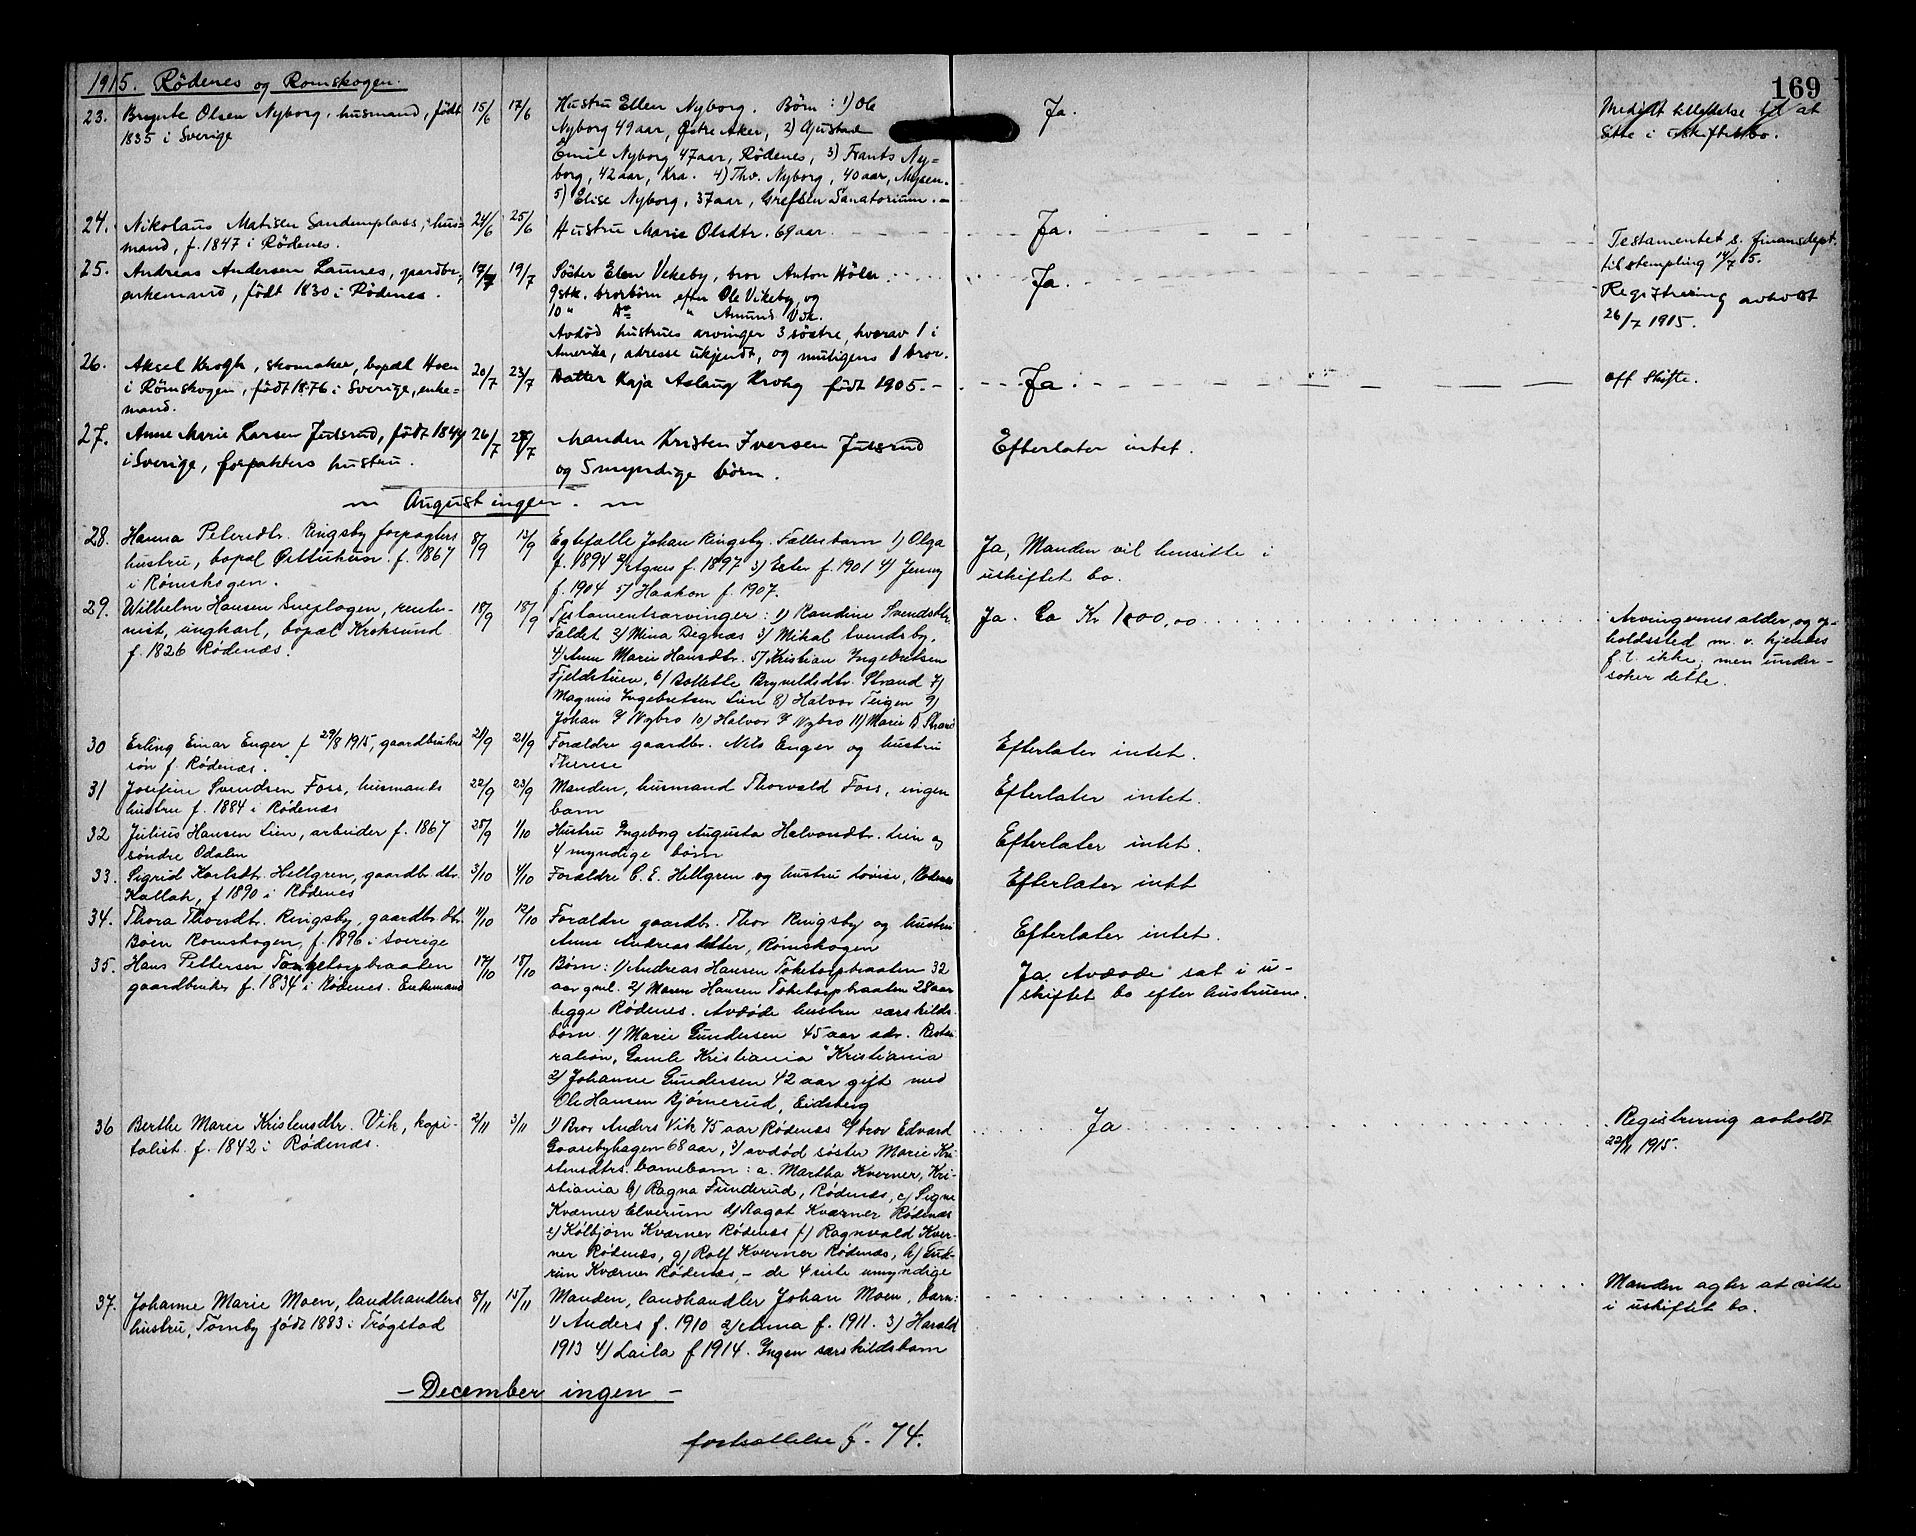 169
1915. Rödenes og Romskogen.
23. Olsen Nyborg, husmand, født 15/6 17/6 Hustru Ellen Nyborg. Börn: 1) Ole Ja.
1835 i Sverige Nyborg 49 aar, Østre Aker, 2) Gustad
Emil Nyborg 47 aar, Rödenes, 3) Frants Ny=
borg, 42 aar, Kra. 4) Thv. Nyborg, 40 aar, Mysen.
5) Elise Nyborg, 37 aar, Grefsen Sanatorium.
Meddelt tilladelse til at
sitte i uskiftet bo.
24. Nikolaus Matisen Sandemplass, hus= 24/6 25/6 Hustru Marie Olsdtr. 69 aar. Ja.
mand, f. 1847 i Rödenes.
25. Andreas Andersen Launes, gaardbr., 17/7 19/7 Söster Elen Vekeby, bror Anton Hölen. Ja.
enkemand, født 1830 i Rödenes. 9 stk. brorbörn efter Ole Vikeby, og
10 " do " Amund Vik.
Avdød hustrues arvinger 3 söstre, hvorav 1 i
Amerika, adresse ukjendt, og muligens 1 bror.
Testamentet s. finansdept.
til stempling 14/7 15.
Registrering avholdt
26/7 1915.
26. Aksel Krogh, skomaker, bopæl Hoen 20/7 23/7 Datter Kaja Aslaug Krohg født 1905. Ja. Off Skifte.
i Römskogen, født 1876 i Sverige, enke=
mand.
27. Anne Marie Larsen Julsrud, født 1844 26/7 27/7 Manden Kristen Iversen Julsrud Efterlater intet.
i Sverige, forpakters hustru. og 5 myndige börn.
August ingen.
28. Hanna Petersdtr. Ringsby forpagters 8/9 13/9 Egtefælle Johan Ringsby. Fællesbarn 1) Olga Ja, Manden vil hensitte i
hustru, bopæl f. 1867 f. 1894 2) Agnes f. 1897 3) Ester f. 1901 4) Jenny uskiftet bo.
i Rømskogen. f. 1904 5) Haakon f. 1907.
29. Wilhelm Hansen Sneplogen, rente- 18/9 18/9 Testamentsarvinger: 1) Randine Svendsdtr. Ja. Ca Kr 1000,00
nist, ungkarl, bopæl Kroksund Faldet 2) Mina Degnæs 3) Mikal Svendsby,
f. 1826 Rødenæs. 4) Anne Marie Hansdtr. 5) Kristian Ingebretsen
Fjeldstuen, 6) Bollette Brynildsdtr. Strand 7)
Magnus Ingebretsen Lien 8) Halvor Teigen 9)
Johan Nybro 10) Halvor Nybro 11) Marie Strand
Arvingernes alder, og op-
holdssted m. v. kjendes
f. t. ikke, men under-
søker dette.
30 Erling Einar Enger f 29/8 1915, gaardbruker 21/9 21/9 Forældre gaardbr. Nils Enger og hustru Efterlater intet.
søn f. Rødenæs. Therese
31 Josefine Svendsen Foss, husmands 22/9 23/9 Manden, husmand Thorvald Foss, ingen Efterlater intet.
hustru f. 1884 i Rødenæs barn
32 Julius Hansen Lien, arbeider f. 1867 25/9 1/10 Hustru Ingeborg Augusta Halvorsdtr. Lien og Efterlater intet.
søndre Odalen 4 myndige børn
33. Sigrid Karlsdtr. Hellgren, gaardb. dtr. 3/10 4/10 Forældre C. E. Hellgren og hustru Lovise, Rødenes Efterlater intet
Kallak, f 1890 i Rødenes
34. Thora Thorsdtr. Ringsby, gaardbr. dtr. 11/10 12/10 Forældre gaardbr. Thor Ringsby og hustru Efterlater intet.
Böen Romskogen, f. 1896 i Sverige Anne Andreasdatter, Romskogen
35. Hans Pettersen Toketorpbraaten 17/10 18/10 Børn: 1) Andreas Hansen Toketorpbraaten 32 Ja, Avdøde sat i u-
gaardbruker f. 1834 i Rødenes. Enkemand aar gml. 2) Maren Hansen Toketorpbraaten 28 aar skiftet bo efter hustruen.
begge Rødenes. Avdøde hustru særskilds
børn 1) Marie Gundersen 45 aar adr. Restau
ration, Gamle Kristiania "Kristiania
2) Johanne Gundersen 42 aar gift med
Ole Hansen Bjørnerud, Eidsberg
36 Berthe Marie Kristensdtr. Vik, kapi- 2/11 3/11 1) Bror Anders Vik 45 aar Rødenæs 2) bror Edvard Ja Registrering avholdt
talist. f. 1842 i Rødenæs. Gaasebyhagen 68 aar, 3) avdød søster Marie Kri- 22/11 1915.
stensdtrs. barnebarn: a. Martha Kverner, Kri-
stiania b) Ragna Funderud, Rødenæs, c) Signe
Kværner Elverum d) Aagot Kværner Rødenæs
e) Kolbjørn Kværner Rødenæs f) Ragnvald Kver-
ner Rødenæs, g) Rolf Kverner Rødenæs, h) Gud-
run Kværner Rødenæs, - de 4 siste umyndige
37. Johanne Marie Moen, landhandlers 8/11 15/11 Manden, landhandler Johan Moen, barn: Manden agter at sitte
hustru, Tomby født 1883 i Trøgstad 1) Anders f. 1910 2) Anna f. 1911. 3) Harald i uskiftet bo.
1913 4) Laila f 1914. Ingen særskildsbarn
- December ingen -
fortsættelse f. 74.